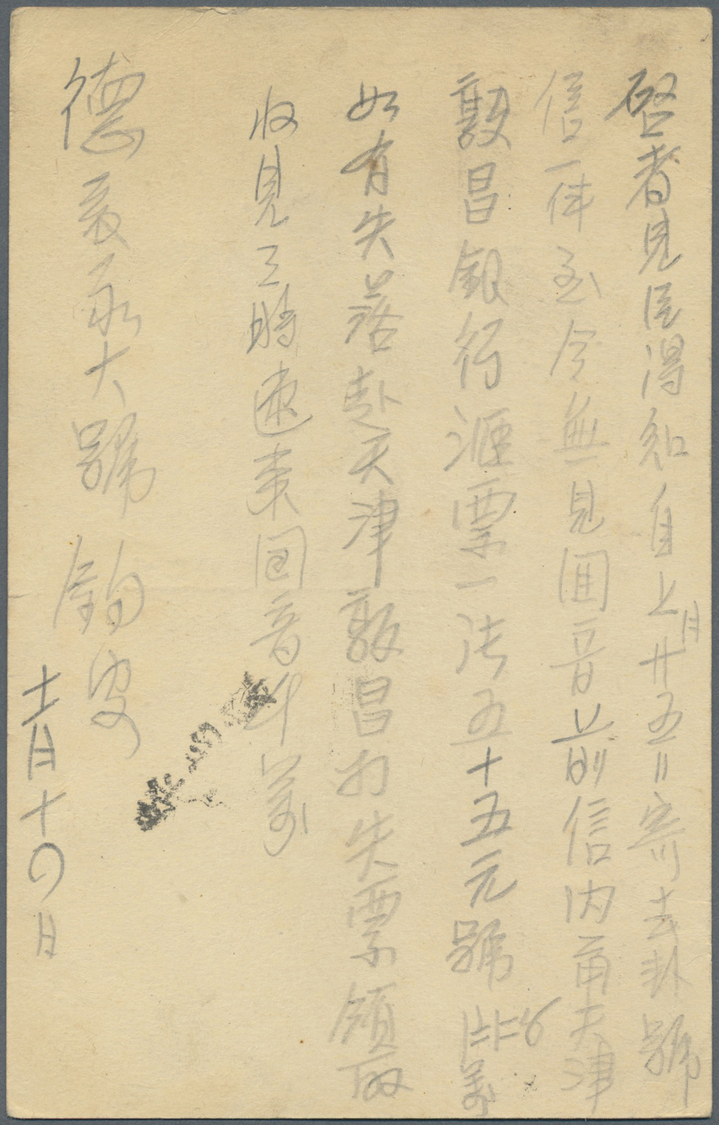 啓者見信得知自上月廿五日寄去卦號
信一件至今無見回音前信内有天津
敦昌銀行滙票一張五十五元號
如有失落赴天津敦昌打失票領取
收見之時速來回音千萬
德義永大號鈞安
十一月十四日